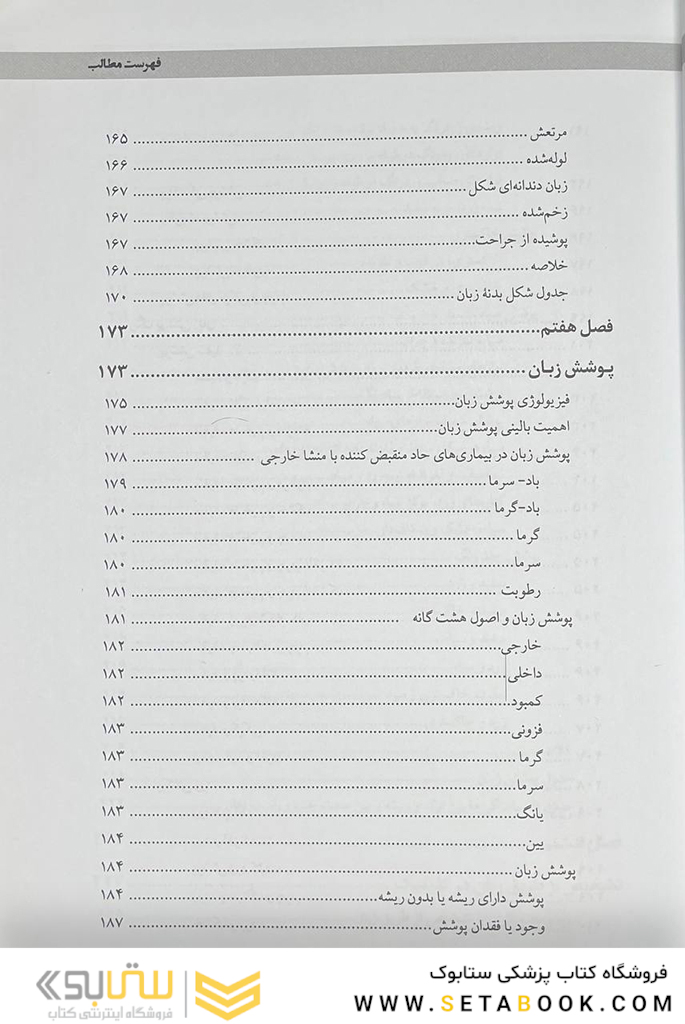 فهرست مطالب
مرتعش ........ ۱۶۵
لوله‌شده ........ ۱۶۶
زبان دندانه‌ای شکل ........ ۱۶۷
زخم‌شده ........ ۱۶۷
پوشیده از جراحت ........ ۱۶۷
خلاصه ........ ۱۶۸
جدول شکل بدنهٔ زبان ........ ۱۷۰
فصل هفتم ........ ۱۷۳
پوشش زبان ........ ۱۷۳
فیزیولوژی پوشش زبان ........ ۱۷۵
اهمیت بالینی پوشش زبان ........ ۱۷۷
پوشش زبان در بیماری‌های حاد منقبض کننده با منشا خارجی ........ ۱۷۸
باد- سرما ........ ۱۷۹
باد-گرما ........ ۱۸۰
گرما ........ ۱۸۰
سرما ........ ۱۸۰
رطوبت ........ ۱۸۱
پوشش زبان و اصول هشت گانه ........ ۱۸۱
خارجی ........ ۱۸۲
داخلی ........ ۱۸۲
کمبود ........ ۱۸۲
فزونی ........ ۱۸۳
گرما ........ ۱۸۳
سرما ........ ۱۸۳
یانگ ........ ۱۸۳
یین ........ ۱۸۴
پوشش زبان ........ ۱۸۴
پوشش دارای ریشه یا بدون ریشه ........ ۱۸۴
وجود یا فقدان پوشش ........ ۱۸۷
فروشگاه کتاب پزشکی ستابوک
WWW.SETABOOK.COM
ستابوک
فروشگاه اینترنتی کتاب